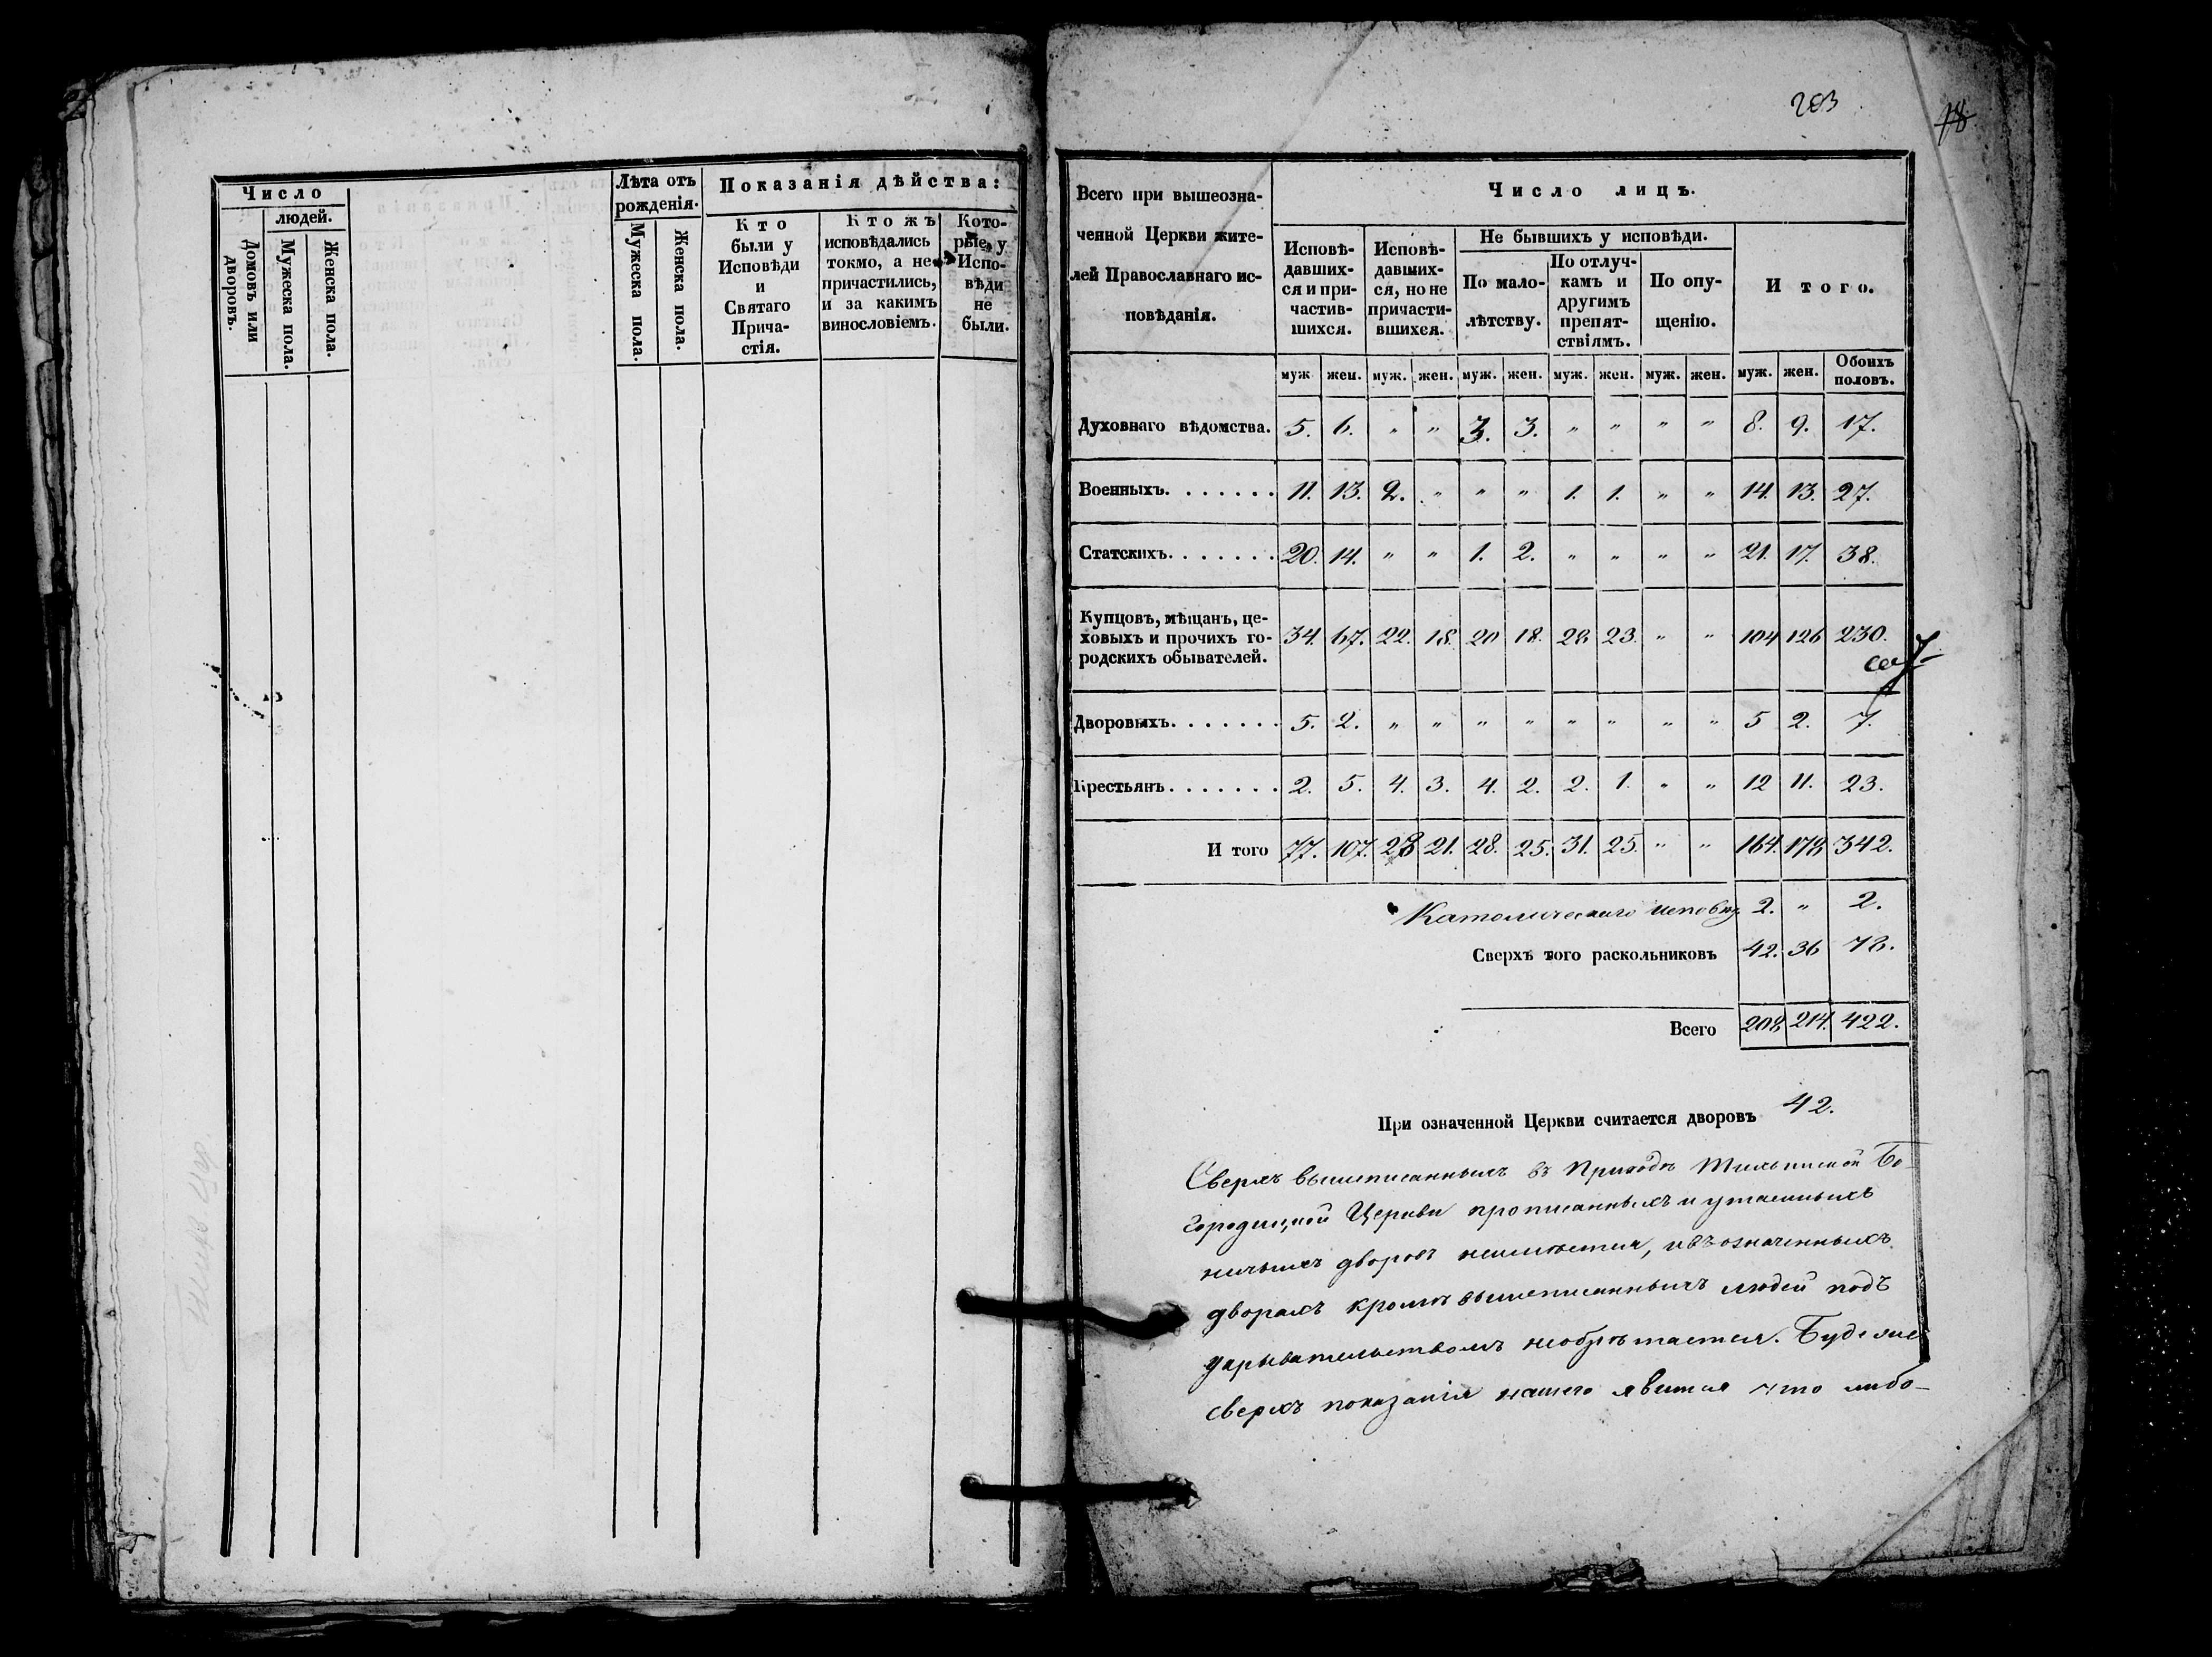 Число
людей.
Домовъ или дворовъ.
Мужеска пола.
Женска пола.
Лѣта отъ рожденія.
Мужеска пола.
Женска пола.
Показанія дѣйства:
Кто были у Исповѣди и Святаго Прича-стія.
Кто жъ исповѣдались токмо, а не причастились, и за какимъ винословіемъ.
Кото-рые у Испо-вѣди не были.
203
78
Всего при вышеозна-
ченной Церкви жите-
лей Православнаго ис-
повѣданія.
Число лицъ.
Исповѣ-давших-ся и при-частив-шихся.
Исповѣ-давших-ся, но не причасти-вшихся.
Не бывшихъ у исповѣди.
По мало-лѣтству.
По отлуч-камъ и другимъ препят-ствіямъ.
По опу-щенію.
И того.
муж. жен. муж. жен. муж. жен. муж. жен. муж. жен. муж. жен. Обоихъ половъ.
Духовнаго вѣдомства. 5. 6. " " 3. 3. " " " " 8. 9. 17.
Военныхъ. . . . . . . 11. 13. 2. " " " 1. 1. " " 14. 13. 27.
Статскихъ. . . . . . . 20. 14. " " 1. 2. " " " " 21. 17. 38.
Купцовъ, мѣщанъ, це-
ховыхъ и прочихъ го-
родскихъ обывателей. 34. 67. 22. 18. 20 18. 28 23. " " 104 126 230.
Дворовыхъ. . . . . . . 5. 2. " " " " " " " " 5 2. 7.
Крестьянъ. . . . . . . 2. 5. 4. 3. 4. 2. 2. 1. " " 12 11. 23.
И того 77. 107. 28 21. 28. 25. 31. 25. " " 164. 178 342.
Католическаго исповѣд. 2. " 2.
Сверхъ того раскольниковъ 42. 36 78.
Всего 208 214. 422.
При означенной Церкви считается дворовъ 42.
Сверхъ вышеписанныхъ въ Приходѣ Бо-
городицкой Церкви прописанныхъ и утаенныхъ
ничьихъ дворовъ неимѣется, и въ означенныхъ
дворахъ кромѣ вышеписанныхъ людей подъ
укрывательствомъ необрѣтается. Буде же
сверхъ показанія нашего явится что либо-